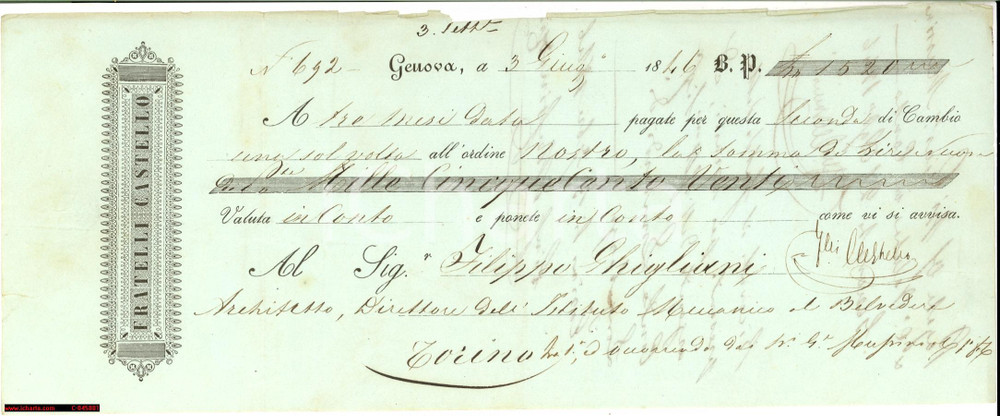 3. Sett.
FRATELLI CASTELLO
N 692 Genova, a 3 Giug.o 1846 B. P. Ln 1520
A tre mesi data pagate per questa seconda di Cambio
una sol volta all'ordine Nostro, la somma di Lire nuove
Mille Cinque Cento Venti
Valuta in Conto e ponete in Conto come vi si avvisa.
Flli Castello
Al Sig.r Filippo Ghigliani
Architetto, Direttore dell' Istituto Meccanico al Belvedere
Torino
www.icharta.com C 045801